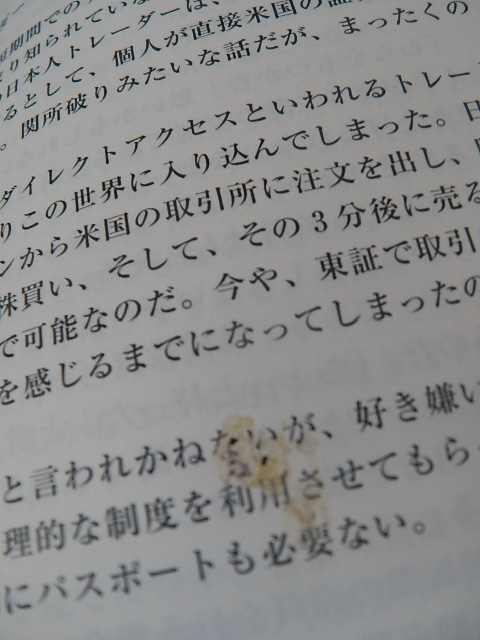 短期間での
り知られていな
日本人トレーダーは、
るとして、個人が直接米国の証
。関所破りみたいな話だが、まったくの
ダイレクトアクセスといわれるトレー
りこの世界に入り込んでしまった。日
ンから米国の取引所に注文を出し、
株買い、そして、その3分後に売る
で可能なのだ。今や、東証で取引
を感じるまでになってしまったの
と言われかねないが、好き嫌い
理的な制度を利用させてもら
にパスポートも必要ない。